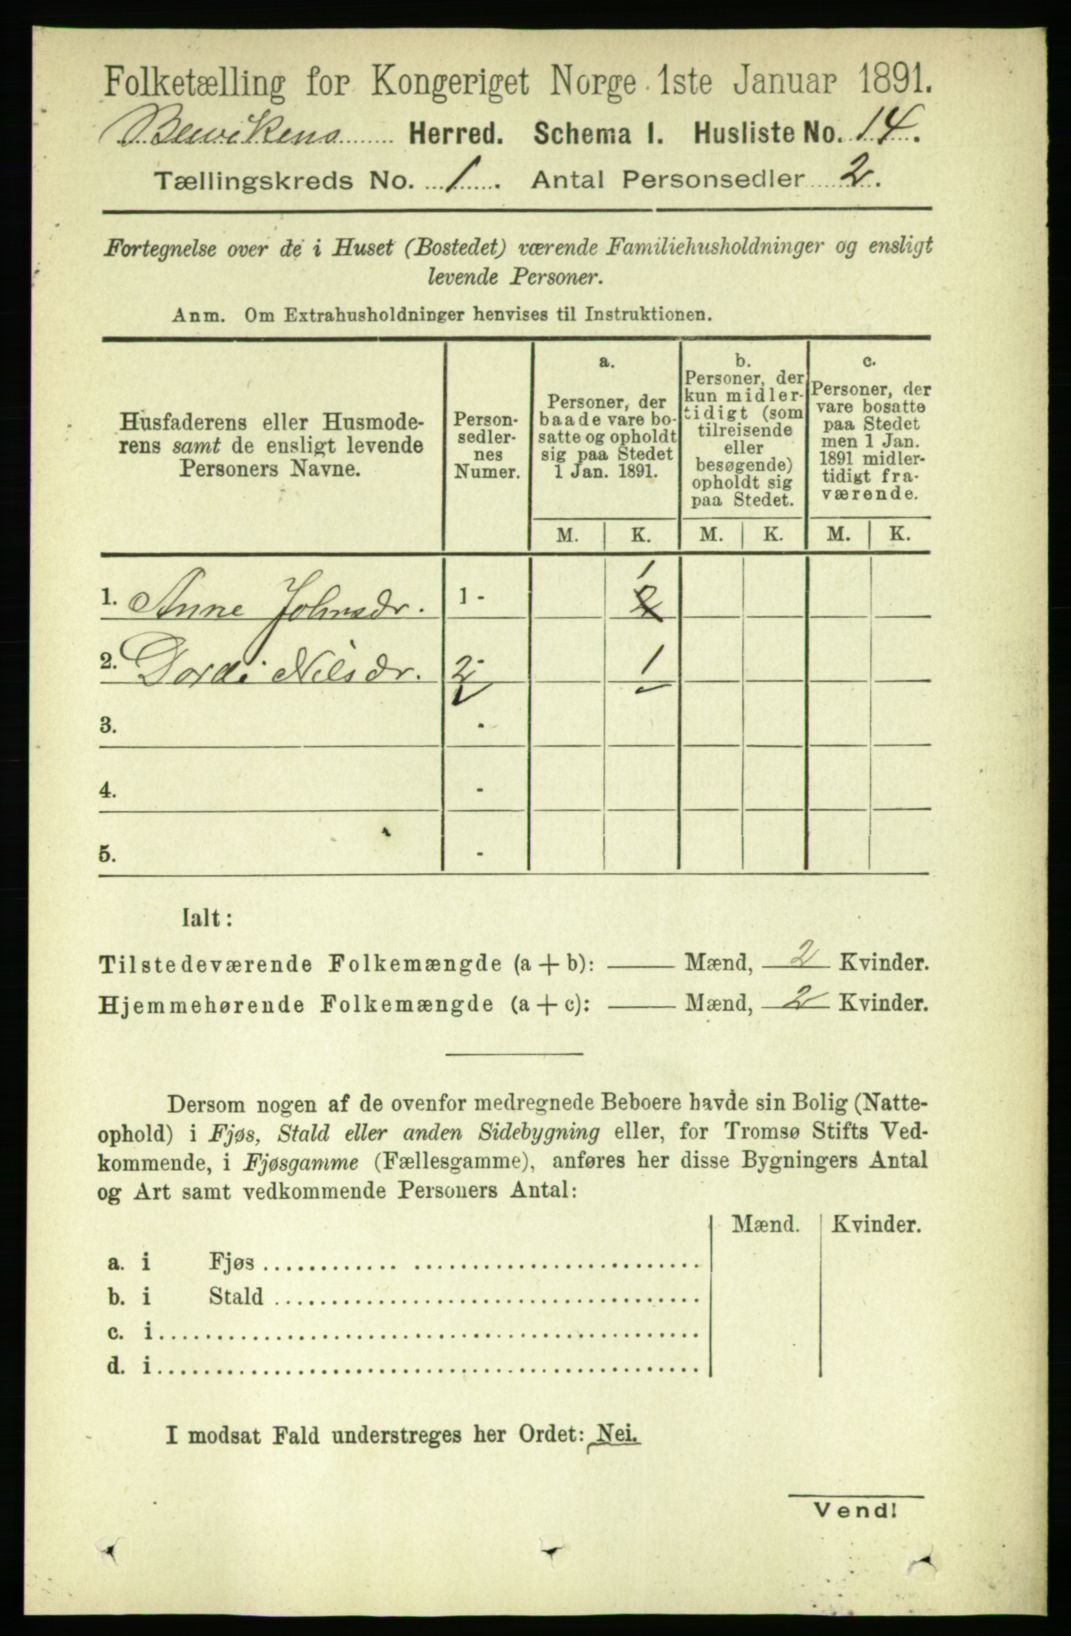 Folketælling for Kongeriget Norge 1ste Januar 1891.
Bew̃ikens Herred. Schema I. Husliste No. 14.
Tællingskreds No. 1. Antal Personsedler 2.
Fortegnelse over de i Huset (Bostedet) værende Familiehusholdninger og ensligt
levende Personer.
Anm. Om Extrahusholdninger henvises til Instruktionen.
Husfaderens eller Husmode-
rens samt de ensligt levende
Personers Navne.
Person-
sedler-
nes
Numer.
a.
Personer, der
baade vare bo-
satte og opholdt
sig paa Stedet
1 Jan. 1891.
b.
Personer, der
kun midler-
tidigt (som
tilreisende
eller
besøgende)
opholdt sig
paa Stedet.
c.
Personer, der
vare bosatte
paa Stedet
men 1 Jan.
1891 midler-
tidigt fra-
værende.
M. K. M. K. M. K.
1. Anne Johnsdr. 1 - 2 1
2. Dordi Nilsdr. 2 - 1
3. -
4. -
5. -
Ialt:
Tilstedeværende Folkemængde (a + b): — Mænd, 2 Kvinder.
Hjemmehørende Folkemængde (a + c): — Mænd, 2 Kvinder.
Dersom nogen af de ovenfor medregnede Beboere havde sin Bolig (Natte-
ophold) i Fjøs, Stald eller anden Sidebygning eller, for Tromsø Stifts Ved-
kommende, i Fjøsgamme (Fællesgamme), anføres her disse Bygningers Antal
og Art samt vedkommende Personers Antal:
Mænd. Kvinder.
a. i Fjøs
b. i Stald
c. i
d. i
I modsat Fald understreges her Ordet: Nei.
Vend!